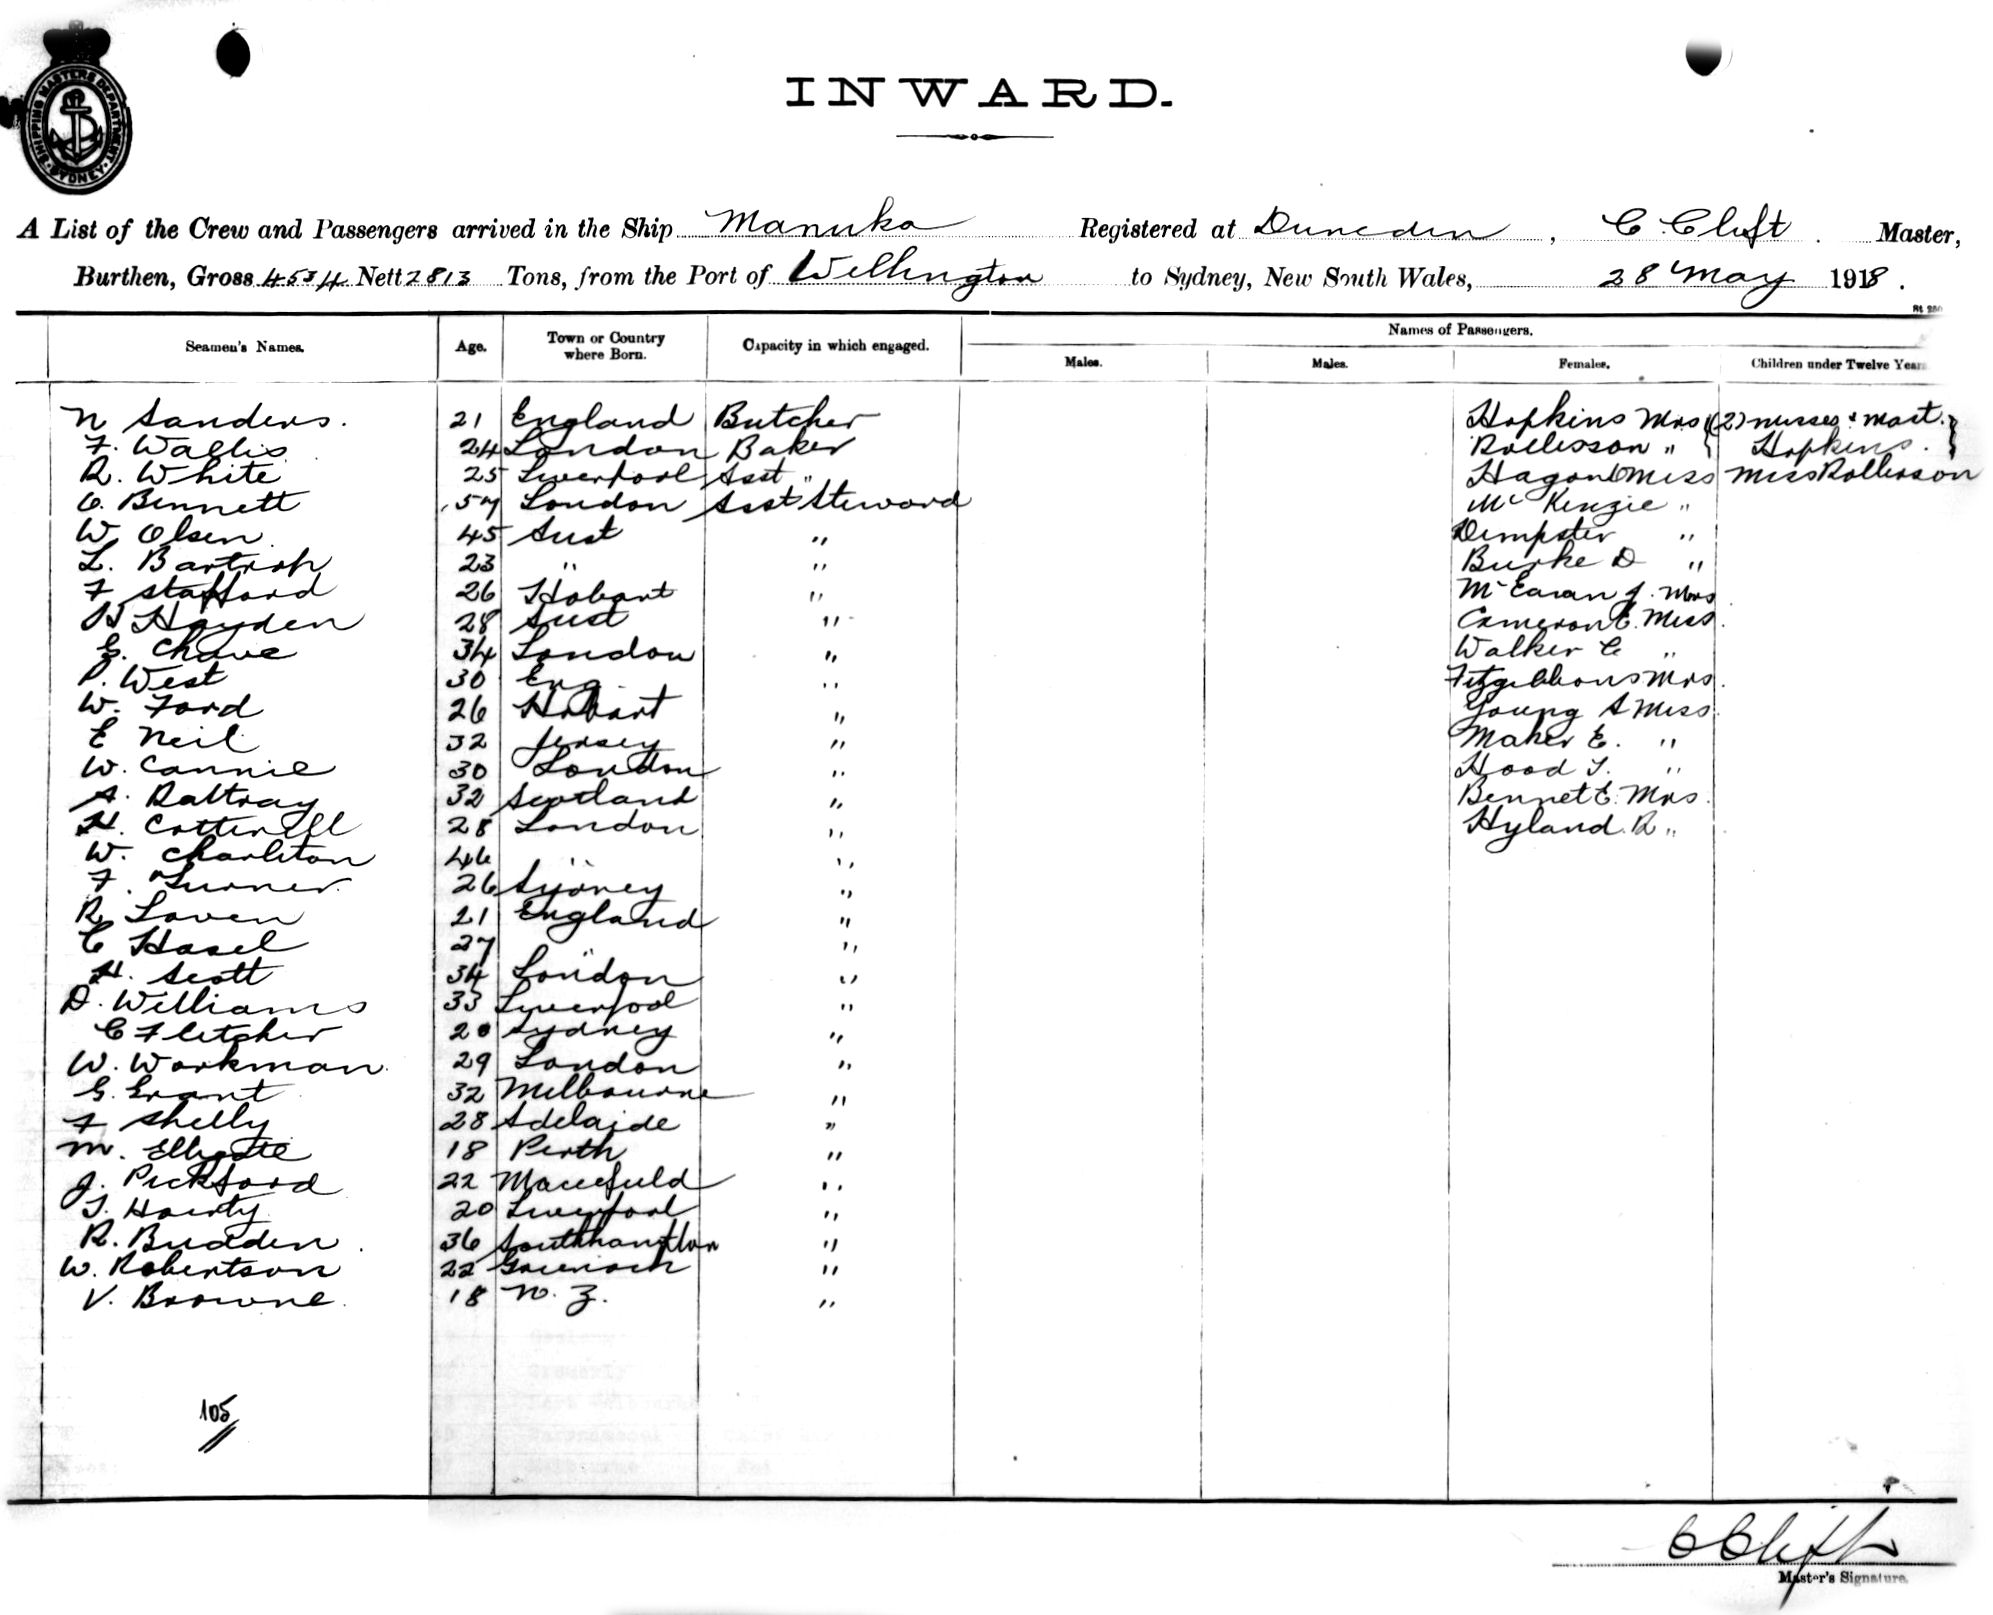 SHIPPING MASTERS DEPARTMENT SYDNEY
INWARD.
A List of the Crew and Passengers arrived in the Ship Manuka Registered at Dunedin, C. Clift. Master,
Burthen, Gross 4534 Nett 2813 Tons, from the Port of Wellington to Sydney, New South Wales, 28 May 1918.
Names of Passengers.
Seamen's Names. Age. Town or Country where Born. Capacity in which engaged. Males. Males. Females. Children under Twelve Years
N Sanders. 21 England Butcher Hopkins Mrs (2) misses & mast.
F. Wallis 24 London Baker Rollisson " Hopkins.
R. White 25 Liverpool Asst " Hagon Miss Miss Rollisson
C. Bennett 57 London Asst Steward Mc Kenzie "
W. Olsen 45 Aust " Dempster "
L. Bartrop 23 " " Burke D "
F Stafford 26 Hobart " J. Mrs
H Hayden 28 Aust " Cameron E. Miss.
E. Chave 34 London " Walker C "
P. West 30 Eng. " Fitzgibbons Mrs.
W. Ford 26 Hobart " Young A Miss.
E Neil 32 Jersey " Maher E. "
W. Cannie 30 London " Hood J. "
A. Rattray 32 Scotland " Bennet E. Mrs.
H. Cotterell 28 London " Hyland R "
W. Charleton 46 " "
F. Turner. 26 Sydney "
R Laven 21 England "
C Hasel 27 " "
H. Scott 34 London "
D. Williams 33 Liverpool "
C Fletcher 20 Sydney "
W. Workman. 29 London "
G. Grant 32 Melbourne "
F Shelly 28 Adelaide "
M. 18 Perth "
J. Pickford 22 "
20 Liverpool "
R. Budden. 36 Southhampton "
W. Robertson 22 Greenock "
V. Browne. 18 N. Z. "
105
C Clift
Master's Signature.